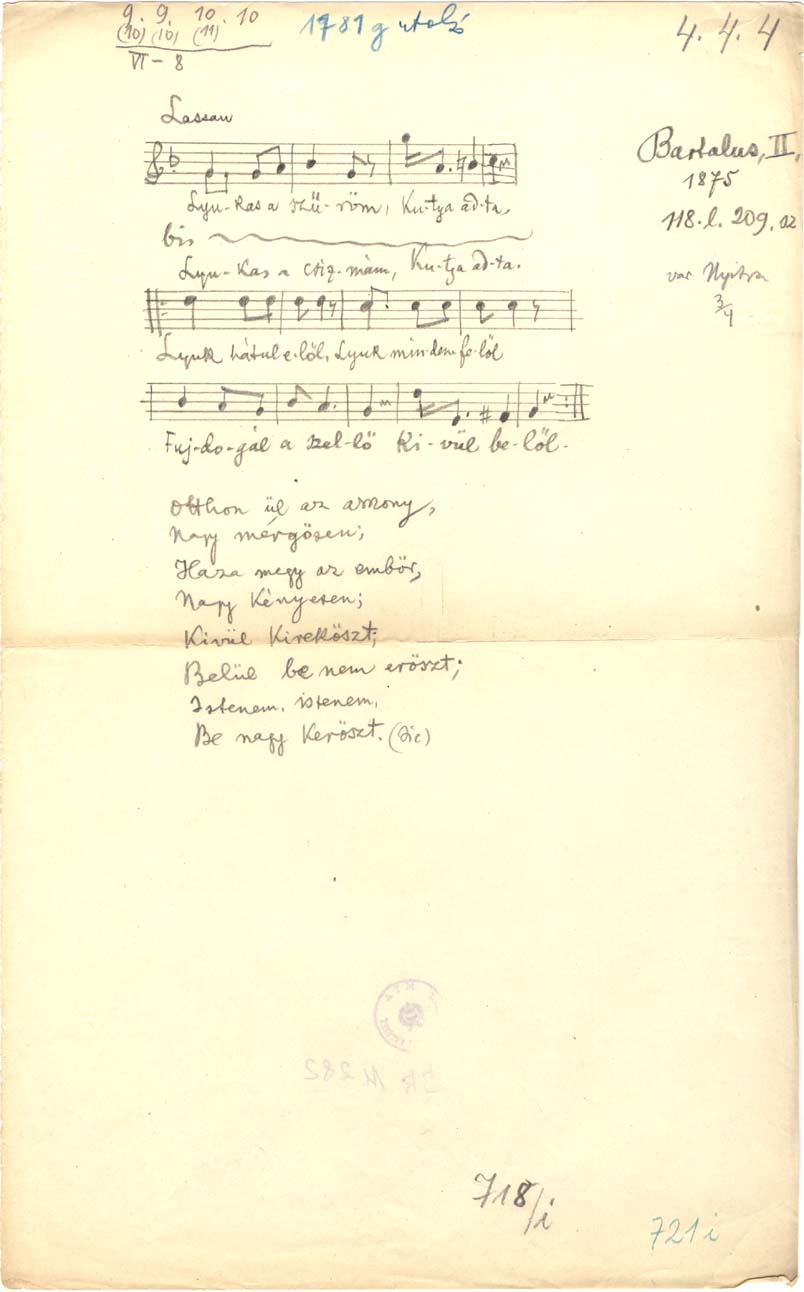 9. 9. 10. 10
(10) (10) (11)
VI - 8
1781 g utolsó
4. 4. 4
Lassan
Bartalus, II,
1875
118. l. 209. sz
var Nyitra
3/4
Lyu-kas a szű-röm, Ku-tya ad-ta,
bis
Lyu-kas a csiz-mám, Ku-tya ad-ta.
Lyuk hátul e-löl, Lyuk min-den fe-löl
Fuj-do-gál a szel-lö Ki-vül be-löl.
Otthon ül az asszony,
Nagy mérgösen;
Haza megy az embör,
Nagy kényesen;
Kivül kireköszt;
Belül be nem eröszt;
Istenem, istenem,
Be nagy keröszt. (Sic)
718/i
721 i